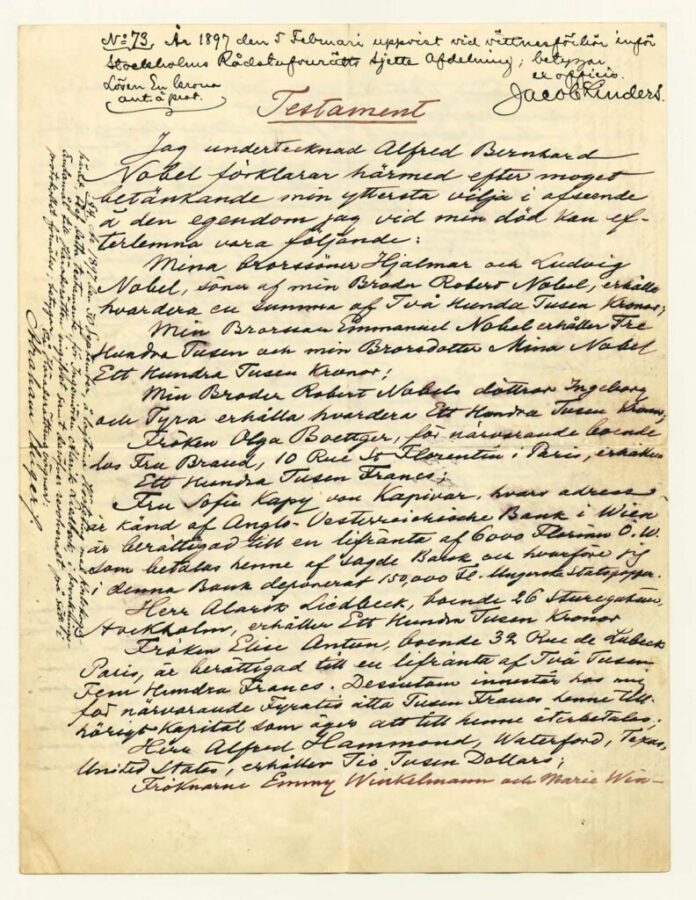 No 73. År 1897 den 5 Februari uppvist vid vittnesförhör inför
Stockholms Rådstufvurätts sjette Afdelning; betygar
ex officio.
Lösen En krona
ant. å prot.
Jacob Linders.
Testament
Jag undertecknad Alfred Bernhard
Nobel förklarar härmed efter moget
betänkande min yttersta vilja i afseende
å den egendom jag vid min död kan ef-
terlemna vara följande:
Mina brorssöner Hjalmar och Ludvig
Nobel, söner af min Broder Robert Nobel, erhålla
hvardera en summa af Två Hundra Tusen Kronor;
Min Brorsson Emmanuel Nobel erhåller Tre
Hundra Tusen och min Brorsdotter Mina Nobel
Ett Hundra Tusen Kronor;
Min Broder Robert Nobels döttrar Ingeborg
och Tyra erhålla hvardera Ett Hundra Tusen Kronor;
Fröken Olga Boettger, för närvarande boende
hos Fru Brand, 10 Rue St Florentin i Paris, erhåller
Ett Hundra Tusen Francs;
Fru Sofie Kapy von Kapivar, hvars adress
är känd af Anglo-Oesterreichische Bank i Wien
är berättigad till en lifränta af 6000 Florins Ö.W.
som betalas henne af sagde Bank och hvarföre jag
i denna Bank deponerat 150,000 Fl. i Ungerska Statspapper.
Herr Alarik Liedbeck, boende 26 Sturegatan,
Stockholm, erhåller Ett Hundra Tusen Kronor
Fröken Elise Antun, boende 32 Rue de Lubeck
Paris, är berättigad till en lifränta af Två Tusen
Fem Hundra Francs. Dessutom innestår hos mig
för närvarande Fyratio åtta Tusen Francs henne till-
hörigt Kapital som äger att till henne återbetalas;
Herr Alfred Hammond, Waterford, Texas,
United States, erhåller Tio Tusen Dollars;
Fröknarne Emmy Winkelmann och Marie Win-
År 1897 den 30 September, i lagtima
härad blef detta testamente för Ingeniören Alarik Liedbeck,
protokollet förmäler; betygar
På Häradsrättens vägnar:
Abraham Unger